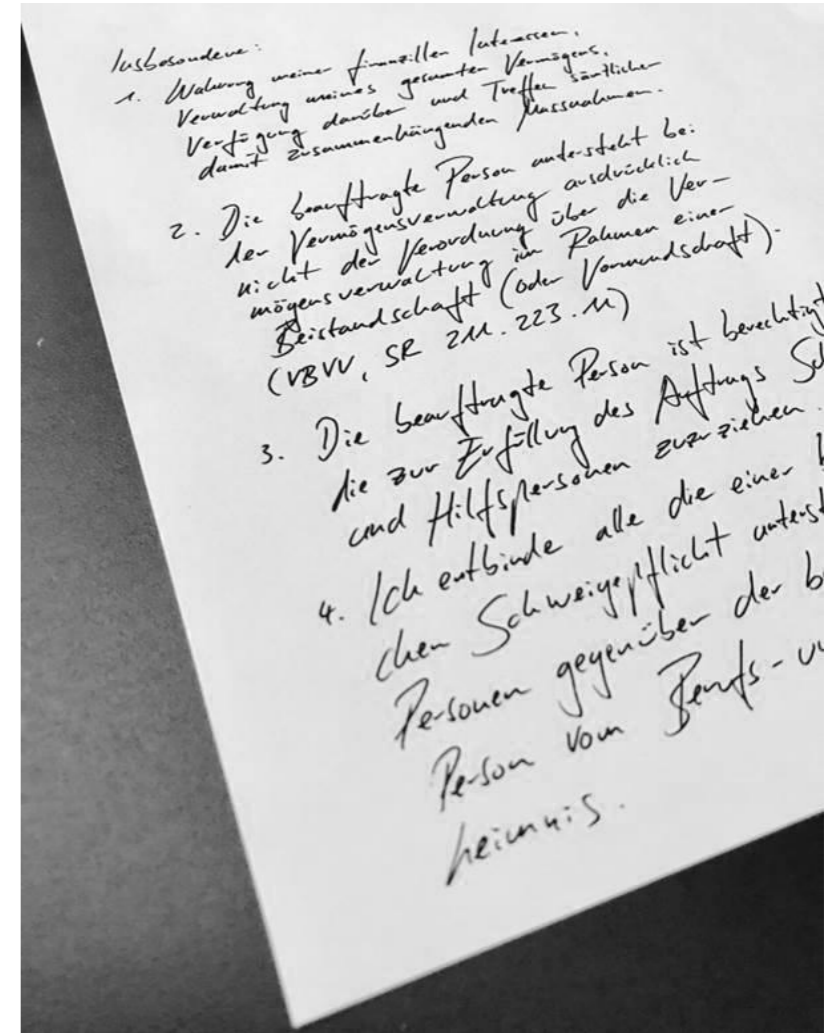 Insbesondere:
1. Wahrung meiner finanzillen Interessen,
Verwaltung meines gesamten Vermögens,
Verfügung darüber und Treffen sämtlicher
damit zusammenhängenden Massnahmen.
2. Die beauftragte Person untersteht bei
der Vermögensverwaltung ausdrücklich
nicht der Verordnung über die Ver-
mögensverwaltung im Rahmen einer
Beistandschaft (oder Vormundschaft).
(VBVV, SR 211.223.11)
3. Die beauftragte Person ist berechtigt
die zur Erfüllung des Auftrags
und Hilfspersonen zuzuziehen.
4. Ich entbinde alle die einer
chen Schweigepflicht
Personen gegenüber der
Person vom Berufs-
heimnis.